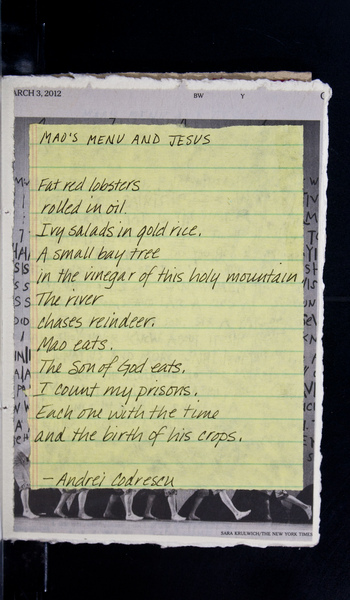 ARCH 3, 2012
BW Y
MAO'S MENU AND JESUS
Fat red lobsters
rolled in oil.
Ivy salads in gold rice.
A small bay tree
in the vinegar of this holy mountain
The river
chases reindeer.
Mao eats.
The Son of God eats.
I count my prisons.
Each one with the time
and the birth of his crops.
—Andrei Codrescu
SARA KRULWICH/THE NEW YORK TIMES